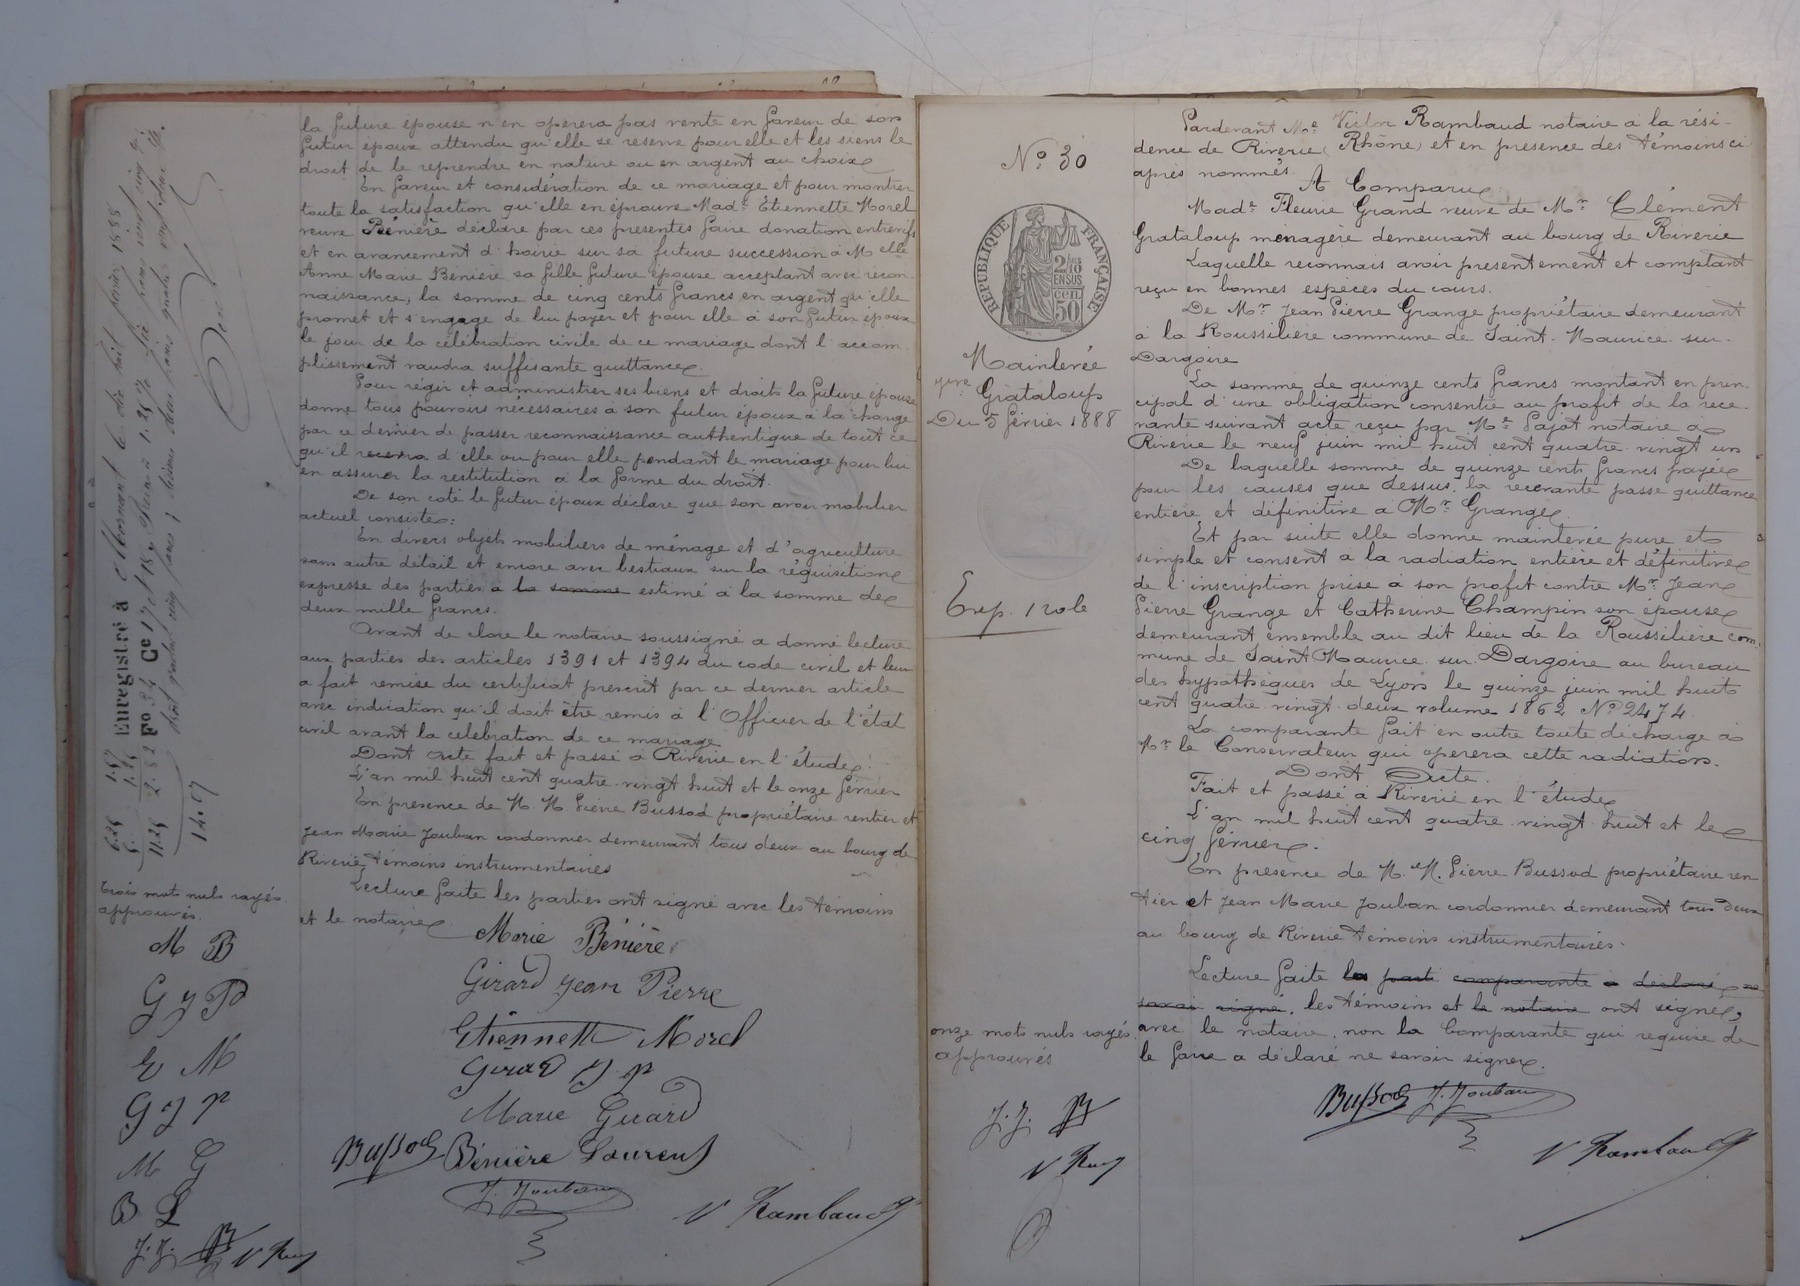 la future épouse n'en operera pas vente en faveur de son
futur époux attendu qu'elle se reserve pour elle et les siens le
droit de le reprendre en nature ou en argent au choix
En faveur et considération de ce mariage et pour montrer
toute la satisfaction qu'elle en éprouve Made Étiennette Morel
veuve Bénière déclare par ces presentes faire donation entrevifs
et en avancement d'hoirie sur sa future succession à Melle
Anne Marie Bénière sa fille future épouse acceptant avec recon-
naissance, la somme de cinq cents francs en argent qu'elle
promet et s'engage de lui payer et pour elle à son futur époux
le jour de la célébration civile de ce mariage dont l'accom-
plissement vaudra suffisante quittance
Pour régir et administrer ses biens et droits la future épouse
donne tous pouvoirs nécessaires à son futur époux à la charge
par ce dernier de passer reconnaissance authentique de tout ce
qu'il recevra d'elle ou pour elle pendant le mariage pour lui
en assurer la restitution a la forme du droit.
De son coté le futur époux déclare que son avoir mobilier
actuel consiste:
En divers objets mobiliers de ménage et d'agriculture
sans autre détail et encore avec bestiaux sur la réquisition
expresse des parties a la somme estimé à la somme de
deux mille francs.
Avant de clore le notaire soussigné a donné lecture
aux parties des articles 1391 et 1394 du code civil et leur
a fait remise du certificat prescrit par ce dernier article
avec indication qu'il doit être remis à l'Officier de l'état
civil avant la celebration de ce mariage
Dont Acte fait et passé à Riverie en l'étude
L'an mil huit cent quatre vingt huit et le onze février
En presence de M. M. Pierre Bussod propriétaire rentier et
Jean Marie Jouban cordonnier demeurant tous deux au bourg de
Riverie témoins instrumentaires
Lecture faite les parties ont signé avec les témoins
et le notaire
Marie Bénière
Girard Jean Pierre
Etiennette Morel
Girard J P
Marie Girard
Bussod Bénière Laurent
J. Jouban
V Rambaud
Enregistré à Mornant le dix huit février 1888
Fo 34 Ce 17
6.25
5.
11.25
1.57
1.25
2.82
14.07
Trois mots nuls rayés
approuvés.
M B
G J P
E M
G J P
M G
B L
J. J.
No 30
RÉPUBLIQUE FRANÇAISE
2/10
EN SUS
50 cen.
Mainlevée
Grataloup
Du 5 février 1888
Exp. 1 role
Pardevant Me Victor Rambaud notaire à la rési-
dence de Riverie (Rhône) et en presence des témoins ci
après nommés.
A Comparu
Made Fleurie Grand veuve de Mr Clément
Grataloup menagère demeurant au bourg de Riverie
Laquelle reconnais avoir presentement et comptant
reçu en bonnes especes du cours.
De Mr Jean Pierre Grange propriétaire demeurant
à la Roussiliere commune de Saint-Maurice-sur-
Dargoire
La somme de quinze cents francs montant en prin-
cipal d'une obligation consentie au profit de la rece-
vante suivant acte reçu par Me Pajot notaire à
Riverie le neuf juin mil huit cent quatre vingt un
De laquelle somme de quinze cents francs payée
pour les causes que dessus, la recevante passe quittance
entière et définitive a Mr Grange
Et par suite elle donne mainlevée pure et
simple et consent a la radiation entière et définitive
de l'inscription prise à son profit contre Mr Jean
Pierre Grange et Catherine Champin son épouse
demeurant ensemble au dit lieu de la Roussilière com-
mune de Saint Maurice-sur-Dargoire au bureau
des hypothèques de Lyon le quinze juin mil huit
cent quatre vingt deux volume 1862 No 2474.
La comparante fait en outre toute décharge à
Mr le Conservateur qui operera cette radiation.
Dont Acte.
Fait et passé à Riverie en l'étude
L'an mil huit cent quatre vingt huit et le
cinq février.
En presence de M. M. Pierre Bussod propriétaire ren-
tier et Jean Marie Jouban cordonnier demeurant tous deux
au bourg de Riverie témoins instrumentaires.
Lecture faite la parti comparante a déclaré ne
savoir signé, les témoins et le notaire ont signé,
avec le notaire, non la Comparante qui requise de
le faire a déclaré ne savoir signer.
onze mots nuls rayés
approuvés
Bussod J. Jouban
V Rambaud
J. J.